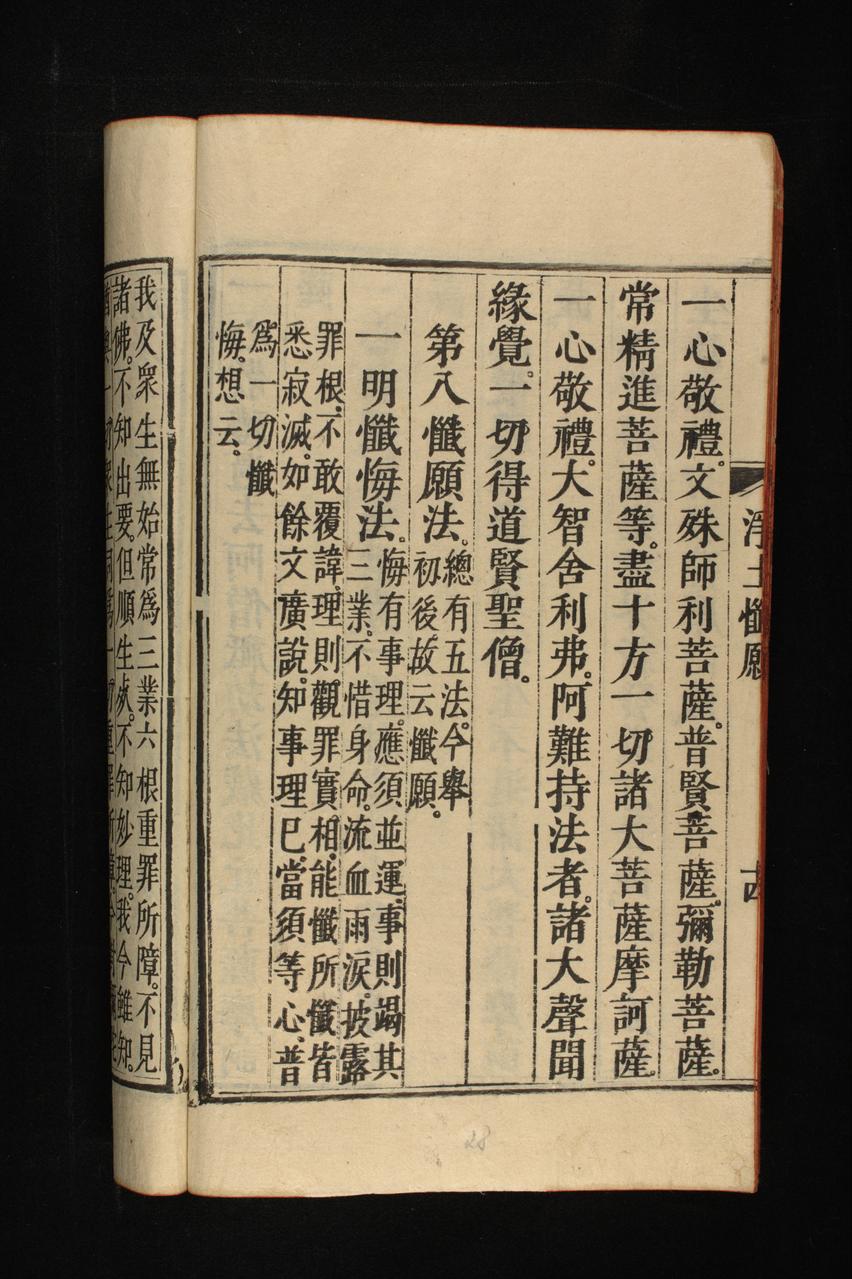 淨土懺願
一心敬禮。文殊師利菩薩。普賢菩薩。彌勒菩薩。
常精進菩薩等。盡十方一切諸大菩薩摩訶薩。
一心敬禮。大智舍利弗。阿難持法者。諸大聲聞
緣覺。一切得道賢聖僧。
第八懺願法。
總有五法。今舉
初後。故云懺願。
一明懺悔法。
悔有事理。應須並運。事則竭其
三業。不惜身命。流血雨淚。披露
罪根。不敢覆諱。理則觀罪實相。能懺所懺皆
悉寂滅。如餘文廣說。知事理已。當須等心。普
爲一切懺
悔。想云。
我及衆生無始常爲三業六根重罪所障。不見
諸佛。不知出要。但順生死。不知妙理。我今雖知。
28